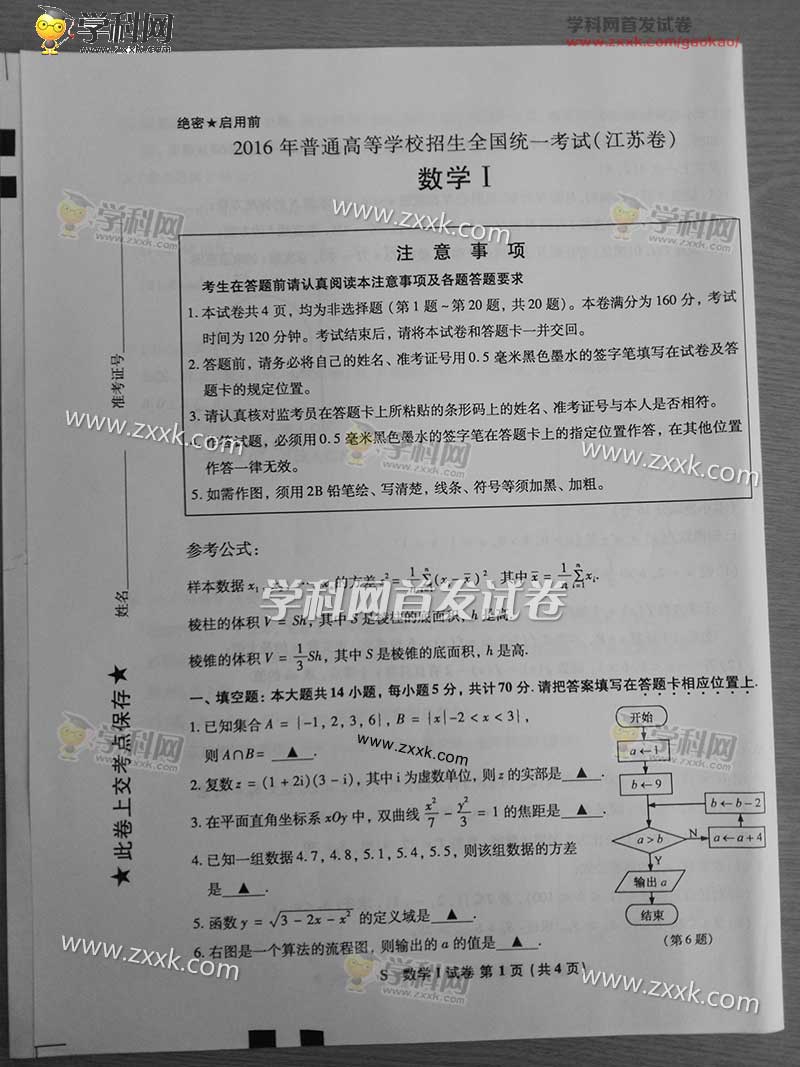 学科网
学科网首发试卷
www.zxxk.com/gaokao/
绝密★启用前
2016 年普通高等学校招生全国统一考试(江苏卷)
数学 I
学科网
www.zxxk.com
学科网
注 意 事 项
考生在答题前请认真阅读本注意事项及各题答题要求
1. 本试卷共 4 页，均为非选择题（第 1 题～第 20 题，共 20 题）。本卷满分为 160 分，考试
时间为 120 分钟。考试结束后，请将本试卷和答题卡一并交回。
2. 答题前，请务必将自己的姓名、准考证号用 0.5 毫米黑色墨水的签字笔填写在试卷及答
题卡的规定位置。
3. 请认真核对监考员在答题卡上所粘贴的条形码上的姓名、准考证号与本人是否相符。
作答试题，必须用 0.5 毫米黑色墨水的签字笔在答题卡上的指定位置作答，在其他位置
作答一律无效。
5. 如需作图，须用 2B 铅笔绘、写清楚，线条、符号等须加黑、加粗。
www.zxxk.com
学科网
www.zxxk.com
准考证号
姓名
★此卷上交考点保存★
参考公式：
样本数据 x₁, 的方差 s² = 1/n ∑ (xᵢ - x̄)², 其中 x̄ = 1/n ∑ xᵢ.
学科网首发试卷
棱柱的体积 V = Sh, 其中 S 是棱柱的底面积, h 是高.
棱锥的体积 V = 1/3 Sh, 其中 S 是棱锥的底面积, h 是高.
一、填空题：本大题共 14 小题，每小题 5 分，共计 70 分. 请把答案填写在答题卡相应位置上.
1. 已知集合 A = {-1, 2, 3, 6}, B = {x|-2 < x < 3},
则 A∩B = ▲ .
www.zxxk.com
2. 复数 z = (1 + 2i)(3 - i), 其中 i 为虚数单位, 则 z 的实部是 ▲ .
3. 在平面直角坐标系 xOy 中, 双曲线 x²/7 - y²/3 = 1 的焦距是 ▲ .
4. 已知一组数据 4.7, 4.8, 5.1, 5.4, 5.5, 则该组数据的方差
是 ▲ .
5. 函数 y = √(3 - 2x - x²) 的定义域是 ▲ .
6. 右图是一个算法的流程图, 则输出的 a 的值是 ▲ .
开始
a←1
b←9
b←b-2
a>b
N
a←a+4
Y
输出 a
结束
(第 6 题)
学科网
学科网
www.zxxk.com
S 数学 I 试卷 第 1 页（共 4 页）
学科网
www.zxxk.com